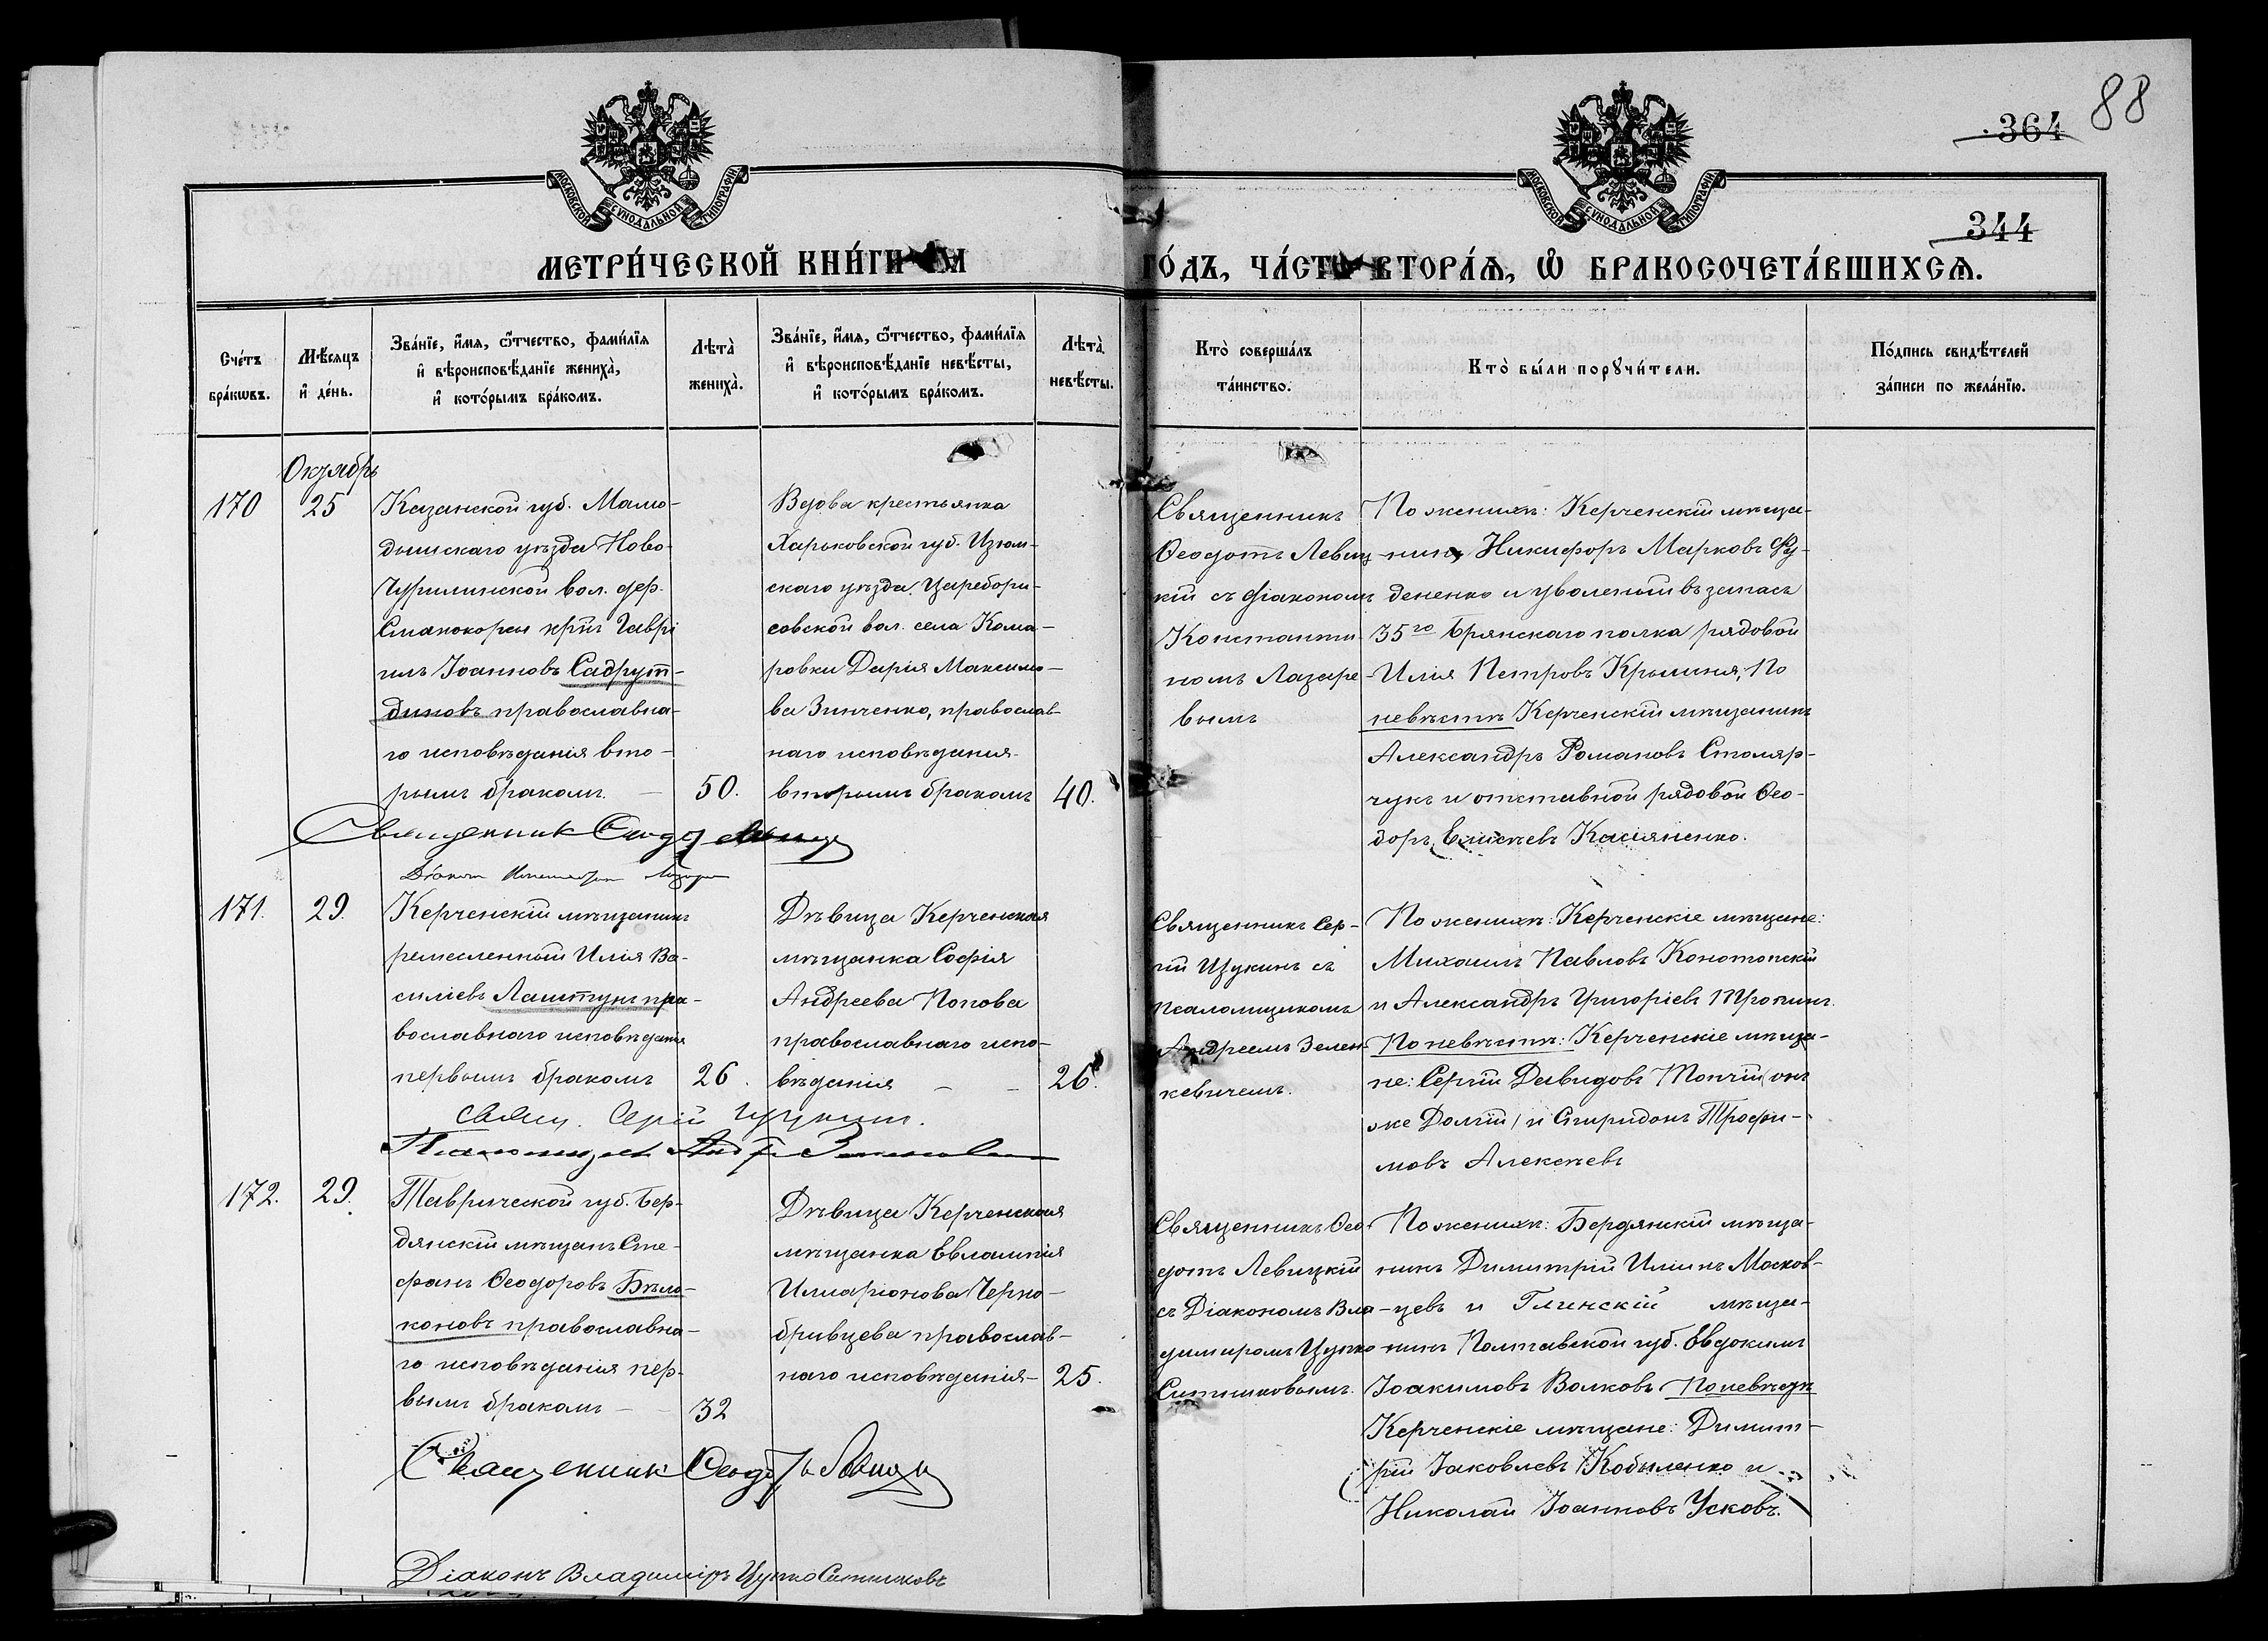 88
364
344
МОСКОВСКОЙ СѴНОДАЛЬНОЙ ТИПОГРАФІИ
МОСКОВСКОЙ СѴНОДАЛЬНОЙ ТИПОГРАФІИ
МЕТРИ́ЧЕСКОЙ КНИ́ГИ
ГО́ДЪ, ЧА́СТЬ ВТОРА́Ѧ, Ѽ БРАКОСОЧЕТА́ВШИХСѦ.
Сче́тъ бра́кѡвъ.
Мѣ́сяцъ и҆ де́нь.
Зва́нїе, и҆́мя, ѻ҆́тчество, фами́лїя и҆ вѣроисповѣ́данїе жениха̀, и҆ кото́рымъ бра́комъ.
Лѣта̀ жениха̀.
Зва́нїе, и҆́мя, ѻ҆́тчество, фами́лїя и҆ вѣроисповѣ́данїе невѣ́сты, и҆ кото́рымъ бра́комъ.
Лѣта̀ невѣ́сты.
Кто̀ соверша́лъ та́инство.
Кто̀ бы́ли порꙋчи́тели.
По́дпись свидѣ́телей за́писи по жела́нїю.
Октябрь
170
25
Казанской губ. Мама-
дышскаго уѣзда Ново-
Чурилинской вол. дер.
крт. Гаврі
илъ Іоанновъ Садрут-
диновъ православна-
го исповѣданія вто-
рымъ бракомъ.
50.
Вдова крестьянка
Харьковской губ. Изюм-
скаго уѣзда, Царебори-
совской вол. села Кома-
ровки Дарія Максимо-
ва Зинченко, православ-
наго исповѣданія
вторымъ бракомъ
40.
Священникъ
Ѳеодотъ Левиц-
кій съ діакономъ
Константи-
номъ Лазаре-
вымъ
По женихѣ: Керченскій мѣща-
нинъ Никифоръ Марковъ Фу-
дененко и уволенный въ запасъ
35го Брянскаго полка рядовой
Илія Петровъ Крышня, По
невѣстѣ Керченскій мѣщанинъ
Александръ Романовъ Столяр-
чукъ и отставной рядовой Ѳео-
доръ Елисѣевъ Касіяненко.
Священник
171.
29.
Керченскій мѣщанинъ
ремесленный Илія Ва-
силіевъ Лаштунъ пра-
вославнаго исповѣданія
первымъ бракомъ
26.
Дѣвица Керченская
мѣщанка Софія
Андреева Попова
православнаго испо-
вѣданія
26.
Священникъ Сер-
гій Щукинъ съ
псаломщикомъ
Андреемъ Зелен-
кевичемъ.
По женихѣ: Керченскіе мѣщане:
Михаилъ Павловъ Конотопскій
и Александръ Григоріевъ Пронинъ.
По невѣстѣ: Керченскіе мѣща-
не: Сергій Давидовъ Тончій (онъ
же Долгій) и Спиридонъ Трофи-
мовъ Алексѣевъ
Свящ. Сергій Щукин.
172.
29.
Таврической губ. Бер-
дянскій мѣщанъ Сте-
фанъ Ѳеодоровъ Бѣло-
коновъ православна-
го исповѣданія пер-
вымъ бракомъ
32
Дѣвица Керченская
мѣщанка Евлампія
Илларіонова Черно-
бривцева православ-
наго исповѣданія
25.
Священникъ Ѳео-
дотъ Левицкій
съ Діакономъ Вла-
димиромъ Цупко
Ситниковымъ.
По женихѣ: Бердянскій мѣща-
нинъ Димитрій Иліинъ Москов-
цевъ и Глинскій мѣща-
нинъ Полтавской губ. Евдокимъ
Іоакимовъ Волковъ По невѣстѣ
Керченскіе мѣщане: Димит-
рій Іаковлевъ Кобыленко и
Николай Іоанновъ Усковъ.
Священник Ѳеодотъ Левицкій
Діаконъ Владиміръ Цупко Ситниковъ